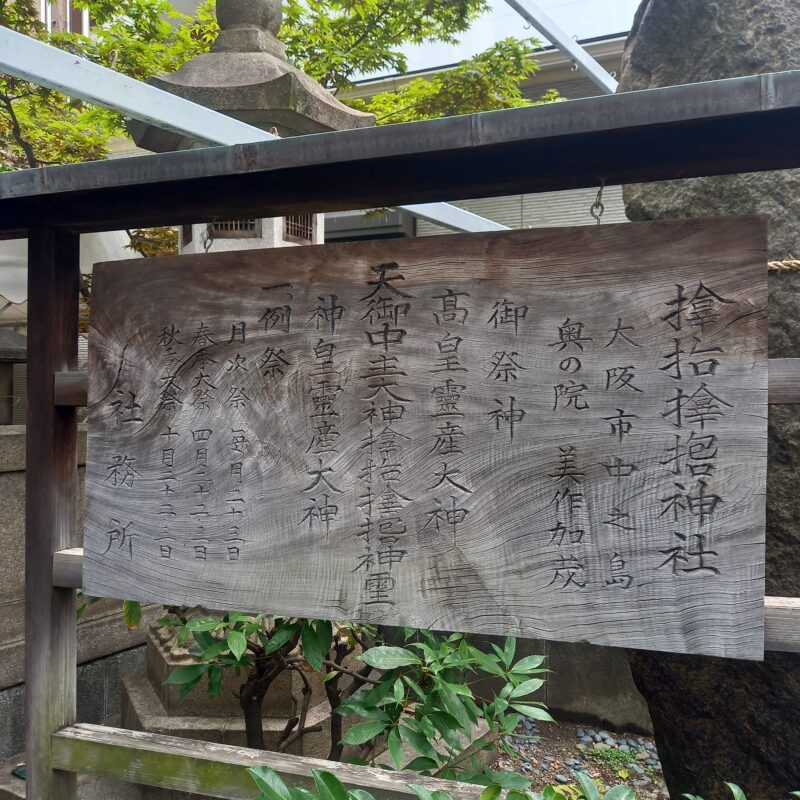 𪮷抬𪮷𪮇神社
大阪市中之島
奥の院 美作加茂
御祭神
髙皇靈産大神
天御中主大神𪮷抬𪮷𪮇神霊
神皇靈産大神
一、例祭
月次祭 毎月二十三日
春季大祭 四月二十二・三日
秋季大祭 十月二十二・三日
社務所